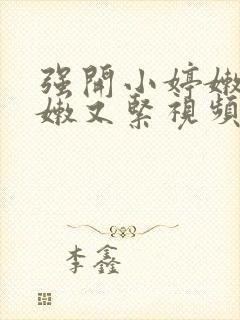 强開小婷嫩
嫩又緊視頻
李鑫